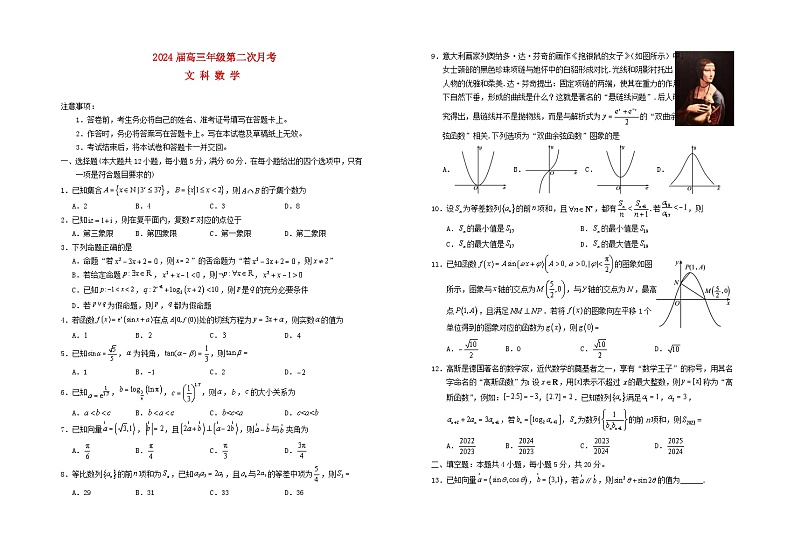 2024 届高三年级第二次月考
文 科 数 学
注意事项：
1．答卷前，考生务必将自己的姓名、准考证号填写在答题卡上。
2．作答时，务必将答案写在答题卡上。写在本试卷及草稿纸上无效。
3．考试结束后，将本试卷和答题卡一并交回。
一、选择题(本大题共 12 小题，每小题 5 分，满分 60 分．在每小题给出的四个选项中，只有
一项是符合题目要求的)
1．已知集合 A={x∈N|3ˣ≤37}，B={x|1≤x<2}，则 A∩B 的子集个数为
A．2 B．4 C．3 D．8
2．已知 iz=1+i，则在复平面内，复数 z 对应的点位于
A．第三象限 B．第四象限 C．第一象限 D．第二象限
3．下列命题正确的是
A．命题“若 x²-3x+2=0，则 x=2”的否命题为“若 x²-3x+2=0，则 x≠2”
B．若给定命题 p:∃x∈R，x²+x-1<0，则 ¬p:∀x∈R，x²+x-1>0
C．已知 p:-1<x<2，q:2ˣ⁺¹+log₂(x+2)<，则 p 是 q 的充分必要条件
D．若 p∨q 为假命题，则 p，q 都为假命题
4．若函数 f(x)=eˣ(sinx+a) 在点 A(0,f(0)) 处的切线方程为 y=3x+a，则实数 a 的值为
A．1 B．2 C．3 D．4
5．已知 sinα=√5/5，α 为钝角，tan(α-β)=1/3，则 tanβ=
A．1 B．-1 C．2 D．-2
6．已知，则 a，b，c 的大小关系为
A．a<b<c B．b<a<c C．b<c<a D．c<a<b
7．已知向量 a=(√3,1)，|b|=2，且 (2a+b)⊥(a-2b)，则 a 与 b 夹角为
A．π/6 B．π/4 C．π/3 D．3π/4
8．等比数列 {aₙ} 的前 n 项和为 Sₙ，已知 a₂a₃=2a₁，且 a₄ 与 2a₇ 的等差中项为 5/4，则 S₅=
A．29 B．31 C．33 D．36
9．意大利画家列奥纳多·达·芬奇的画作《抱银鼠的女子》(如图所示)中，
女士颈部的黑色珍珠项链与她怀中的白貂形成对比．光线和阴影衬托出
人物的优雅和柔美．达·芬奇提出：固定项链的两端，使其在重力的作用
下自然下垂，形成的曲线是什么？这就是著名的“悬链线问题”．后人
究得出，悬链线并不是抛物线，而是与解析式为 y=(eˣ+e⁻ˣ)/2 的“双曲余
弦函数”相关．下列选项为“双曲余弦函数”图象的是
A． B． C． D．
10．设 Sₙ 为等差数列 {aₙ} 的前 n 项和，且 ∀n∈N*，都有 Sₙ/n<Sₙ₊₁/(n+1)．若 a₁₈/a₁₇<-1，则
A．Sₙ 的最小值是 S₁₇ B．Sₙ 的最小值是 S₁₈
C．Sₙ 的最大值是 S₁₇ D．Sₙ 的最大值是 S₁₈
11．已知函数 f(x)=Asin(ωx+φ)(A>0,ω>0,|φ|<π/2) 的图象如图
所示，图象与 x 轴的交点为 M(5/2,0)，与 y 轴的交点为 N，最高
点 P(1,A)，且满足 NM⊥NP．若将 f(x) 的图象向左平移 1 个
单位得到的图象对应的函数为 g(x)，则 g(0)=
A．-√10/2 B．0 C．√10/2 D．√10
12．高斯是德国著名的数学家，近代数学的奠基者之一，享有“数学王子”的称号，用其名
字命名的“高斯函数”为：设 x∈R，用[x]表示不超过 x 的最大整数，则 y=[x] 称为“高
斯函数”，例如：[-2.5]=-3，[2.7]=2．已知数列 {aₙ} 满足 a₁=1，a₂=3，
aₙ₊₂+2aₙ=3aₙ₊₁，若 bₙ=[log₂aₙ₊₁]，Sₙ 为数列 {1/(bₙbₙ₊₁)} 的前 n 项和，则 S₂₀₂₃=
A．2022/2023 B．2024/2023 C．2023/2024 D．2025/2024
二、填空题：本题共 4 小题，每小题 5 分，共 20 分。
13．已知向量 a=(sinθ,cosθ)，b=(3,1)，若 a∥b，则 sin²θ+sin2θ 的值为______．